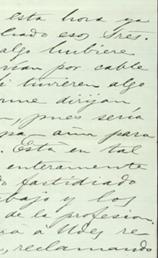 esta hora ya
liado esos Sres.
algo hubiere
por cable
tuvieren algo
me dirijan
, pues sería
para
Está en tal
enteramente
do fastidiado
bajo y los
de la profesion
a Udes re
, reclamando